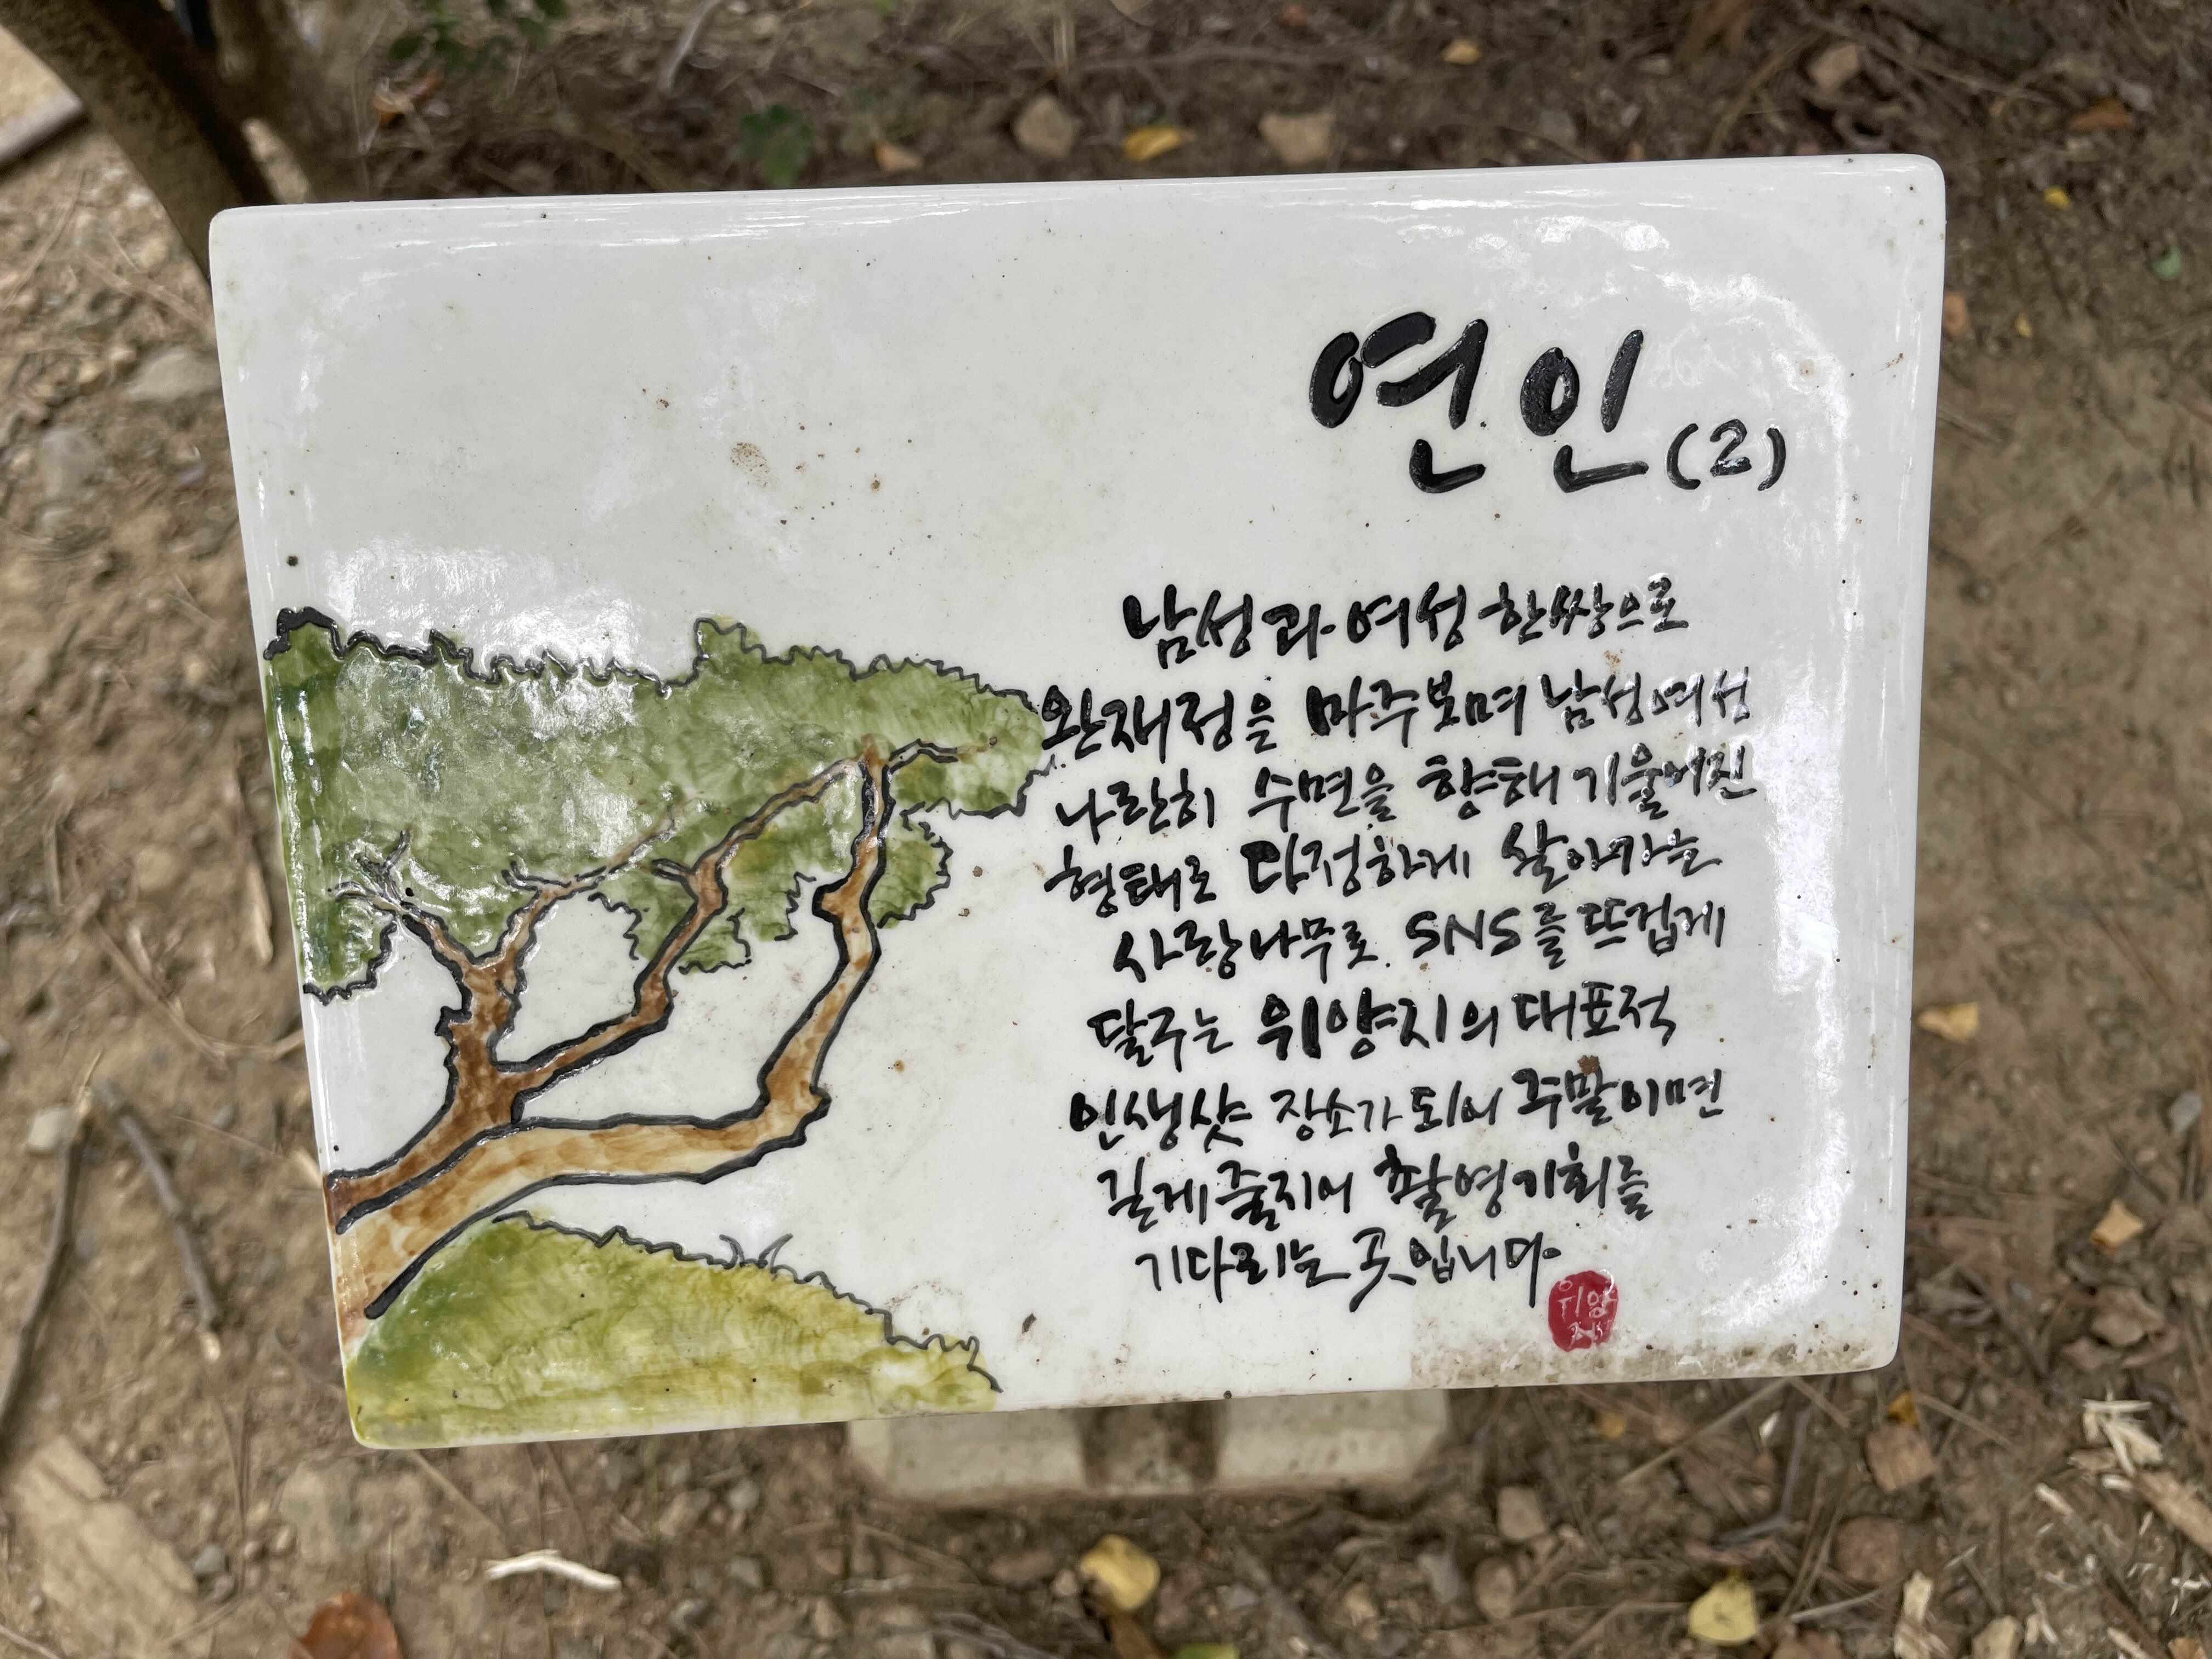 연인(2)
남성과 여성 한쌍으로
완재정을 마주보며 남성여성
나란히 수면을 향해 기울어진
형태로 다정하게 살아가는
사랑나무로. SNS를 뜨겁게
달구는 위양지의 대표적
인생샷 장소가 되어 주말이면
길게 줄지어 촬영기회를
기다리는 곳입니다.